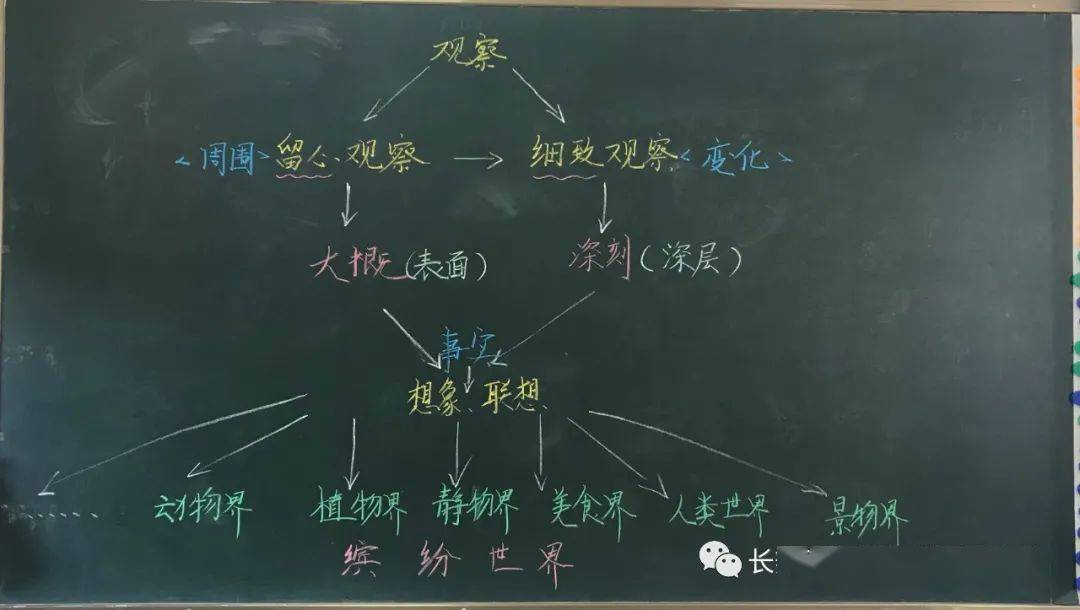 观察
<周围>留心观察 → 细致观察<变化>
大概(表面) 深刻(深层)
事实
想象、联想
...... 动物界 植物界 静物界 美食界 人类世界 景物界
缤纷世界
长